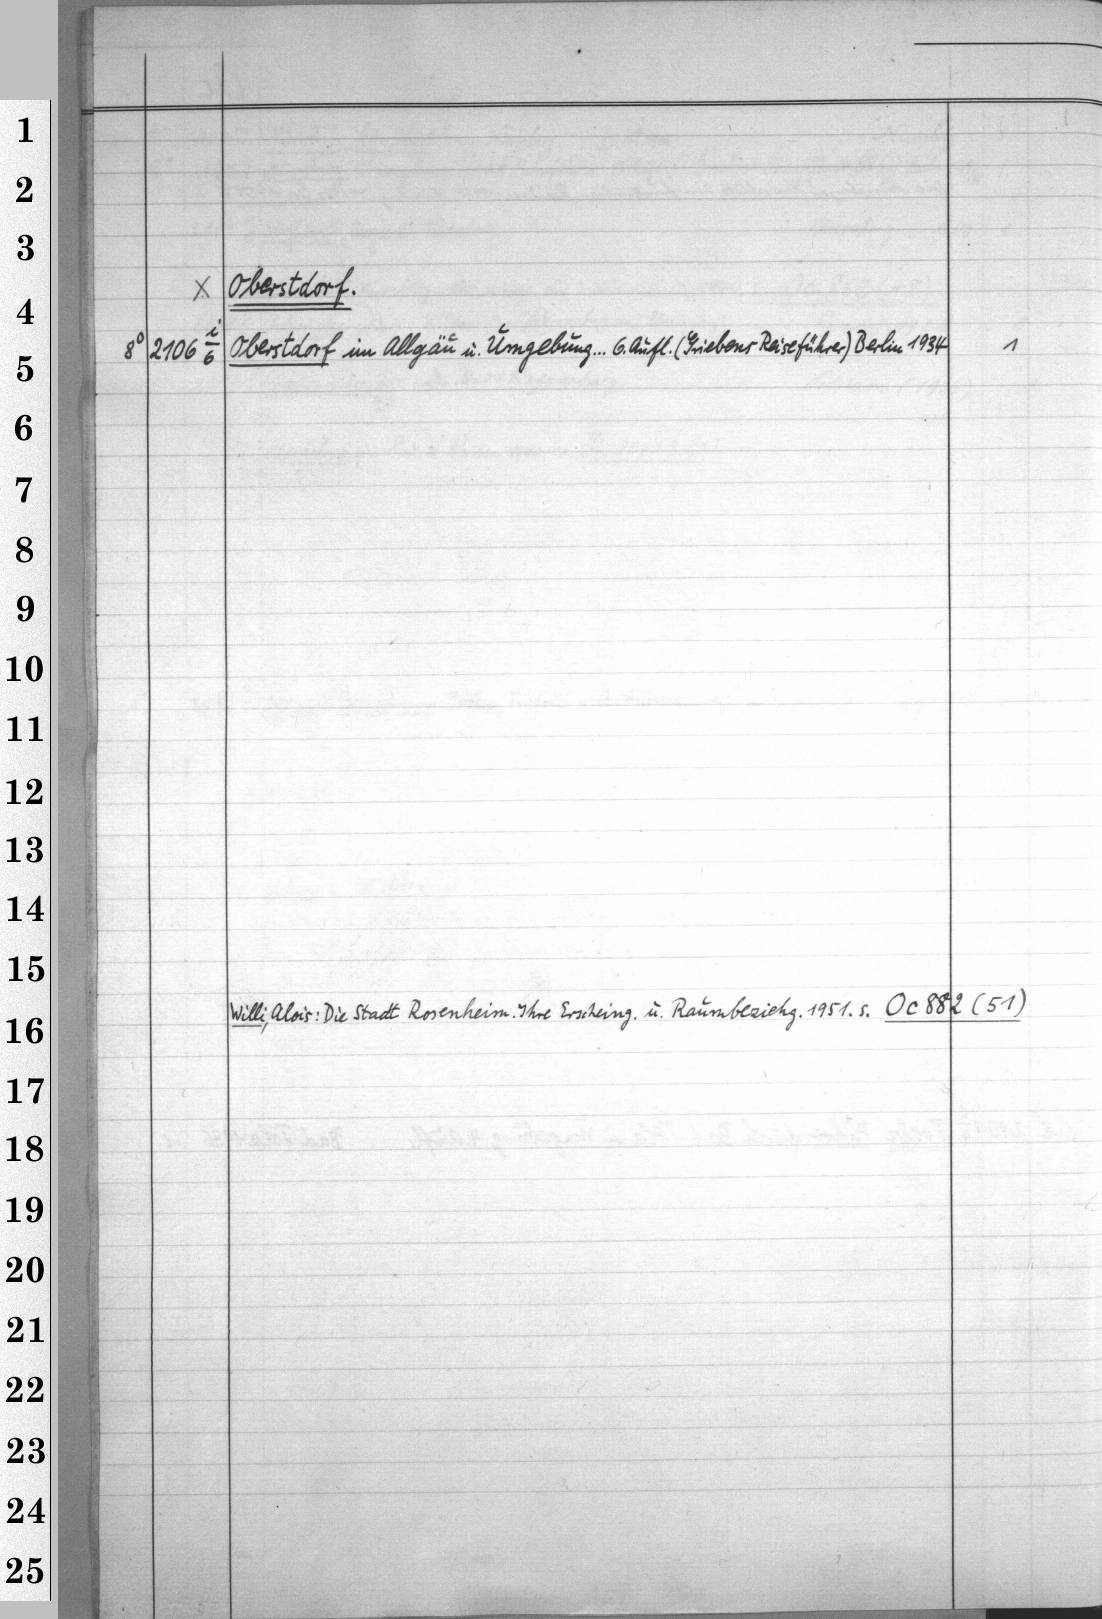 1
2
3
× Oberstdorf.
4
8° 2106 i/6 Oberstdorf im Allgäu u. Umgebung... 6. Aufl. (Griebens Reiseführer) Berlin 1934 1
5
6
7
8
9
10
11
12
13
14
15
Willi, Alois: Die Stadt Rosenheim. Ihre Erscheing. u. Raumbeziehg. 1951. s. Oc 882 (51)
16
17
18
19
20
21
22
23
24
25